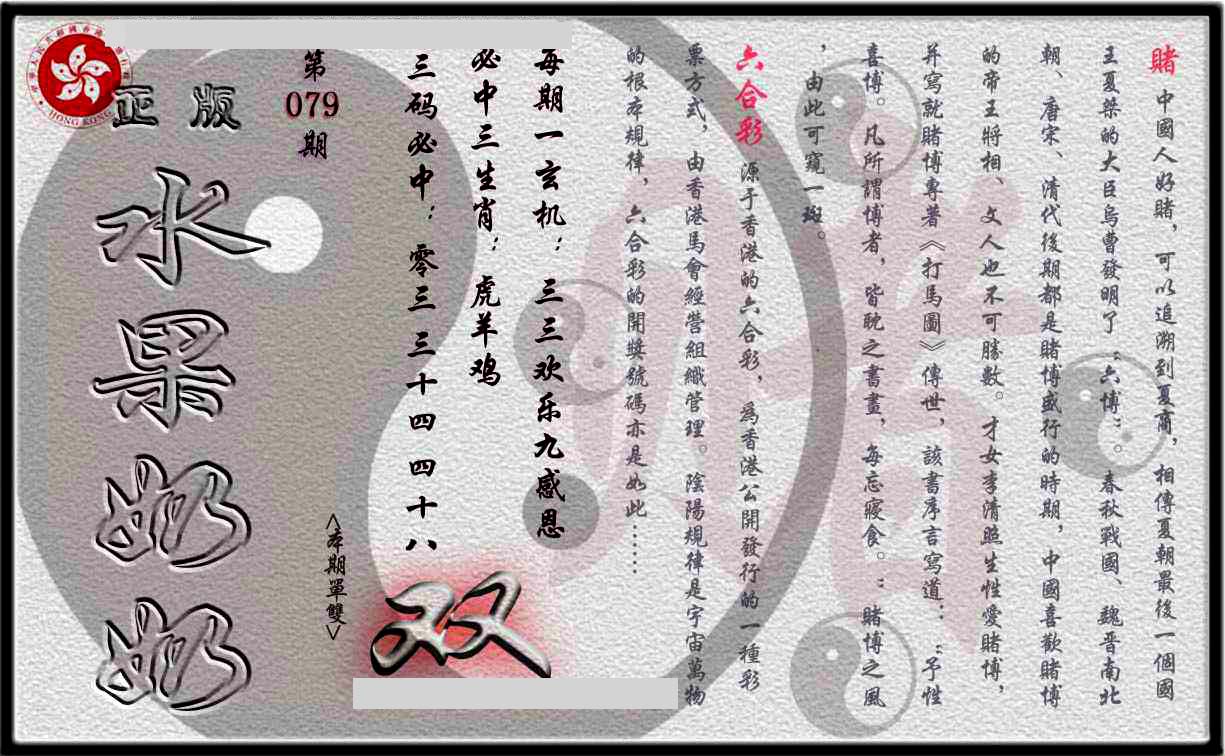 賭 中國人好賭，可以追溯到夏商，相傳夏朝最後一個國
王夏桀的大臣烏曹發明了“六博”。春秋戰國、魏晋南北
朝、唐宋、清代後期都是賭博盛行的時期，中國喜歡賭博
的帝王將相、文人也不可勝數。才女李清照生性愛賭博，
并寫就賭博專著《打馬圖》傳世，該書序言寫道：“予性
喜博。凡所謂博者，皆耽之書畫，每忘寢食。”賭博之風
，由此可窺一斑。
六合彩 源于香港的六合彩，為香港公開發行的一種彩
票方式，由香港馬會經營組織管理。陰陽規律是宇宙萬物
的根本規律，六合彩的開獎號碼亦是如此……
每期一玄机：三三欢乐九感恩
必中三生肖：虎羊鸡
三码必中：零三 三十四 四十八
双
<本期單雙>
第079期
正版
水果奶奶
HONG KONG